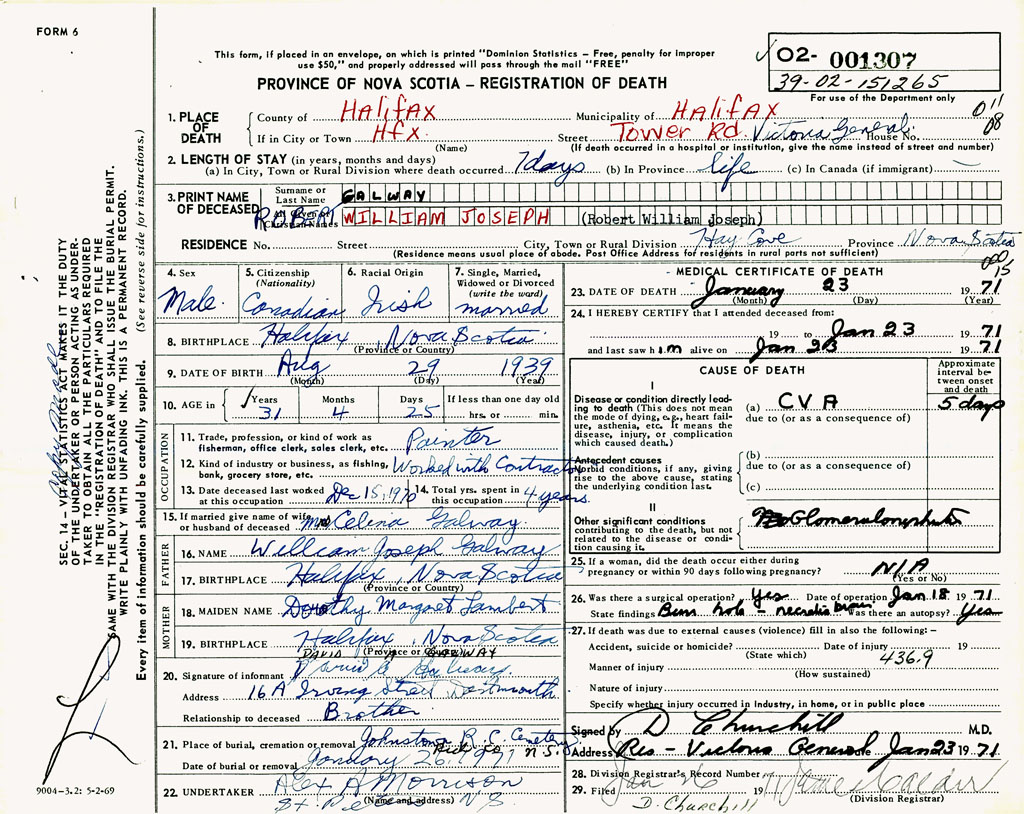 FORM 6
This form, if placed in an envelope, on which is printed "Dominion Statistics – Free, penalty for improper
use $50," and properly addressed will pass through the mail "FREE"
PROVINCE OF NOVA SCOTIA – REGISTRATION OF DEATH
02- 001307
39-02-151265
For use of the Department only
011
08
1. PLACE OF DEATH
County of Halifax Municipality of Halifax
If in City or Town Hfx. Street Tower Rd. Victoria General House No.
(Name) (If death occurred in a hospital or institution, give the name instead of street and number)
2. LENGTH OF STAY (in years, months and days)
(a) In City, Town or Rural Division where death occurred 7 days (b) In Province life (c) In Canada (if immigrant) –
3. PRINT NAME OF DECEASED
Surname or Last Name GALWAY
All Given or Christian Names ROBERT WILLIAM JOSEPH (Robert William Joseph)
RESIDENCE No. Street City, Town or Rural Division Hay Cove Province Nova Scotia
(Residence means usual place of abode. Post Office Address for residents in rural parts not sufficient)
000
15
4. Sex Male.
5. Citizenship (Nationality) Canadian
6. Racial Origin Irish
7. Single, Married, Widowed or Divorced (write the word) married
8. BIRTHPLACE Halifax, Nova Scotia
(Province or Country)
9. DATE OF BIRTH Aug 29 1939
(Month) (Day) (Year)
10. AGE in Years 31 Months 4 Days 25 If less than one day old hrs. or min.
OCCUPATION
11. Trade, profession, or kind of work as fisherman, office clerk, sales clerk, etc. Painter
12. Kind of industry or business, as fishing, bank, grocery store, etc. Worked with Contractor
13. Date deceased last worked at this occupation Dec 15, 1970
14. Total yrs. spent in this occupation 4 years
15. If married give name of wife or husband of deceased Mrs Celina Galway
FATHER
16. NAME William Joseph Galway
17. BIRTHPLACE Halifax, Nova Scotia
(Province or Country)
MOTHER
18. MAIDEN NAME Dorothy Margaret Lambert
19. BIRTHPLACE Halifax, Nova Scotia
(Province or Country)
DAVID A GALWAY
20. Signature of informant David A Galway
Address 16 A Irving Street Dartmouth
Relationship to deceased Brother
21. Place of burial, cremation or removal Johnstown R. C. Cemetery
Rich Co N.S.
Date of burial or removal January 26, 1971
22. UNDERTAKER Alex A Morrison
(Name and address)
St. Peters N S
MEDICAL CERTIFICATE OF DEATH
23. DATE OF DEATH January 23 1971
(Month) (Day) (Year)
24. I HEREBY CERTIFY that I attended deceased from:
19 to Jan 23 1971
and last saw him alive on Jan 23 1971
CAUSE OF DEATH
Approximate interval between onset and death
I
Disease or condition directly leading to death (This does not mean the mode of dying, e.g., heart failure, asthenia, etc. It means the disease, injury, or complication which caused death.)
(a) CVA 5 days
due to (or as a consequence of)
Antecedent causes
Morbid conditions, if any, giving rise to the above cause, stating the underlying condition last.
(b)
due to (or as a consequence of)
(c)
II
Other significant conditions
contributing to the death, but not related to the disease or condition causing it.
Glomerulonephritis
25. If a woman, did the death occur either during pregnancy or within 90 days following pregnancy? N/A
(Yes or No)
26. Was there a surgical operation? Yes Date of operation Jan 18 1971
State findings Burr hole - necrotic brain Was there an autopsy? Yes
27. If death was due to external causes (violence) fill in also the following: –
Accident, suicide or homicide? Date of injury 19
(State which) 436.9
Manner of injury
(How sustained)
Nature of injury
Specify whether injury occurred in industry, in home, or in public place
Signed by D Churchill M.D.
Address Res - Victoria General Date Jan 23 1971
28. Division Registrar's Record Number
29. Filed Jan 26 1971
(Division Registrar)
D. CHURCHILL
SEC. 14 – VITAL STATISTICS ACT MAKES IT THE DUTY
OF THE UNDERTAKER OR PERSON ACTING AS UNDER-
TAKER TO OBTAIN ALL THE PARTICULARS REQUIRED
IN THE "REGISTRATION OF DEATH" AND TO FILE THE
SAME WITH THE DIVISION REGISTRAR WHO SHALL ISSUE THE BURIAL PERMIT.
WRITE PLAINLY WITH UNFADING INK. THIS IS A PERMANENT RECORD.
Every item of information should be carefully supplied. (See reverse side for instructions.)
9004-3.2: 5-2-69